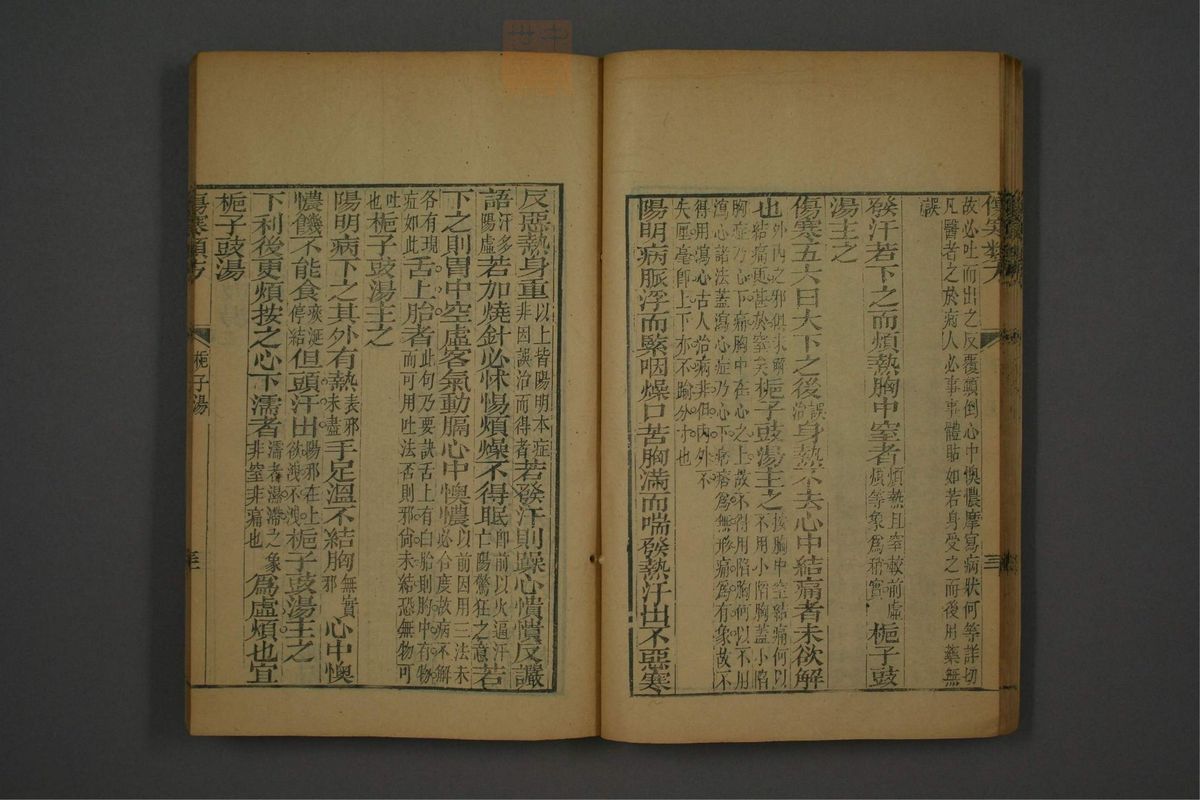 傷寒類方
故必吐而出之反覆顛倒心中懊憹摩寫病狀何等詳切
凡醫者之於病人必事事體貼如若身受之而後用藥無
誤
發汗若下之而煩熱胸中窒者煩熱且窒較前虛煩等象爲稍實梔子豉
湯主之
傷寒五六日大下之後誤治身熱不去心中結痛者未欲解
也外內之邪俱未解結痛更甚於窒矣梔子豉湯主之按胸中窒結痛何以不用小陷胸蓋小陷
胸症乃心下痛胸中在心之上故不得用陷胸何以不用
瀉心諸法蓋瀉心症乃心下痞痞爲無形痛爲有象故不
得用瀉心古人治病非但內外不
失厘毫即上下亦不踰分寸也
陽明病脈浮而緊咽燥口苦胸滿而喘發熱汗出不惡寒
反惡熱身重以上皆陽明本症非因誤治而得者若發汗則躁心憒憒反讝
語汗多陽虛若加燒針必怵惕煩燥不得眠即前以火逼汗亡陽驚狂之意若
下之則胃中空虛客氣動膈心中懊憹以前因用三法未必合度故病不解
各有現症疏如此舌上胎者此句乃要訣舌上有白胎則胸中有物而可用吐法否則邪尙未結恐無物可
吐也梔子豉湯主之
陽明病下之其外有熱表邪未盡手足溫不結胸無實邪心中懊
憹饑不能食痰涎停結但頭汗出陽邪在上欲洩不洩梔子豉湯主之
下利後更煩按之心下濡者濡者濕滯之象非窒非痛也爲虛煩也宜
梔子豉湯
傷寒類方 梔子湯